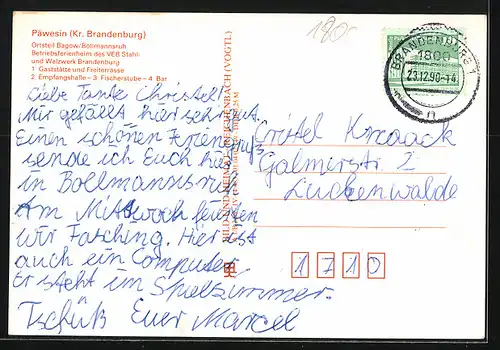 Päwesin (Kr. Brandenburg)
Ortsteil Bagow/Bollmannsruh
Betriebsferienheim des VEB Stahl-
und Walzwerk Brandenburg
1 Gaststätte und Freiterrasse
2 Empfangshalle – 3 Fischerstube – 4 Bar
Liebe Tante Christel!
Mir gefällt hier sehr gut.
Einen schönen Feriengruß
sende ich Euch hier
in Bollmannsruh
Am Mittwoch feierten
wir Fasching. Hier ist
auch ein Computer
Er steht im Spielzimmer.
Tschüß Euer Marcel
BILD UND HEIMAT REICHENBACH (VOGTL)
180,-
BRANDENBURG 1
1800
23.12.90-14
n
Cristel Knaack
Galmerstr. 2
Luckenwalde
1710